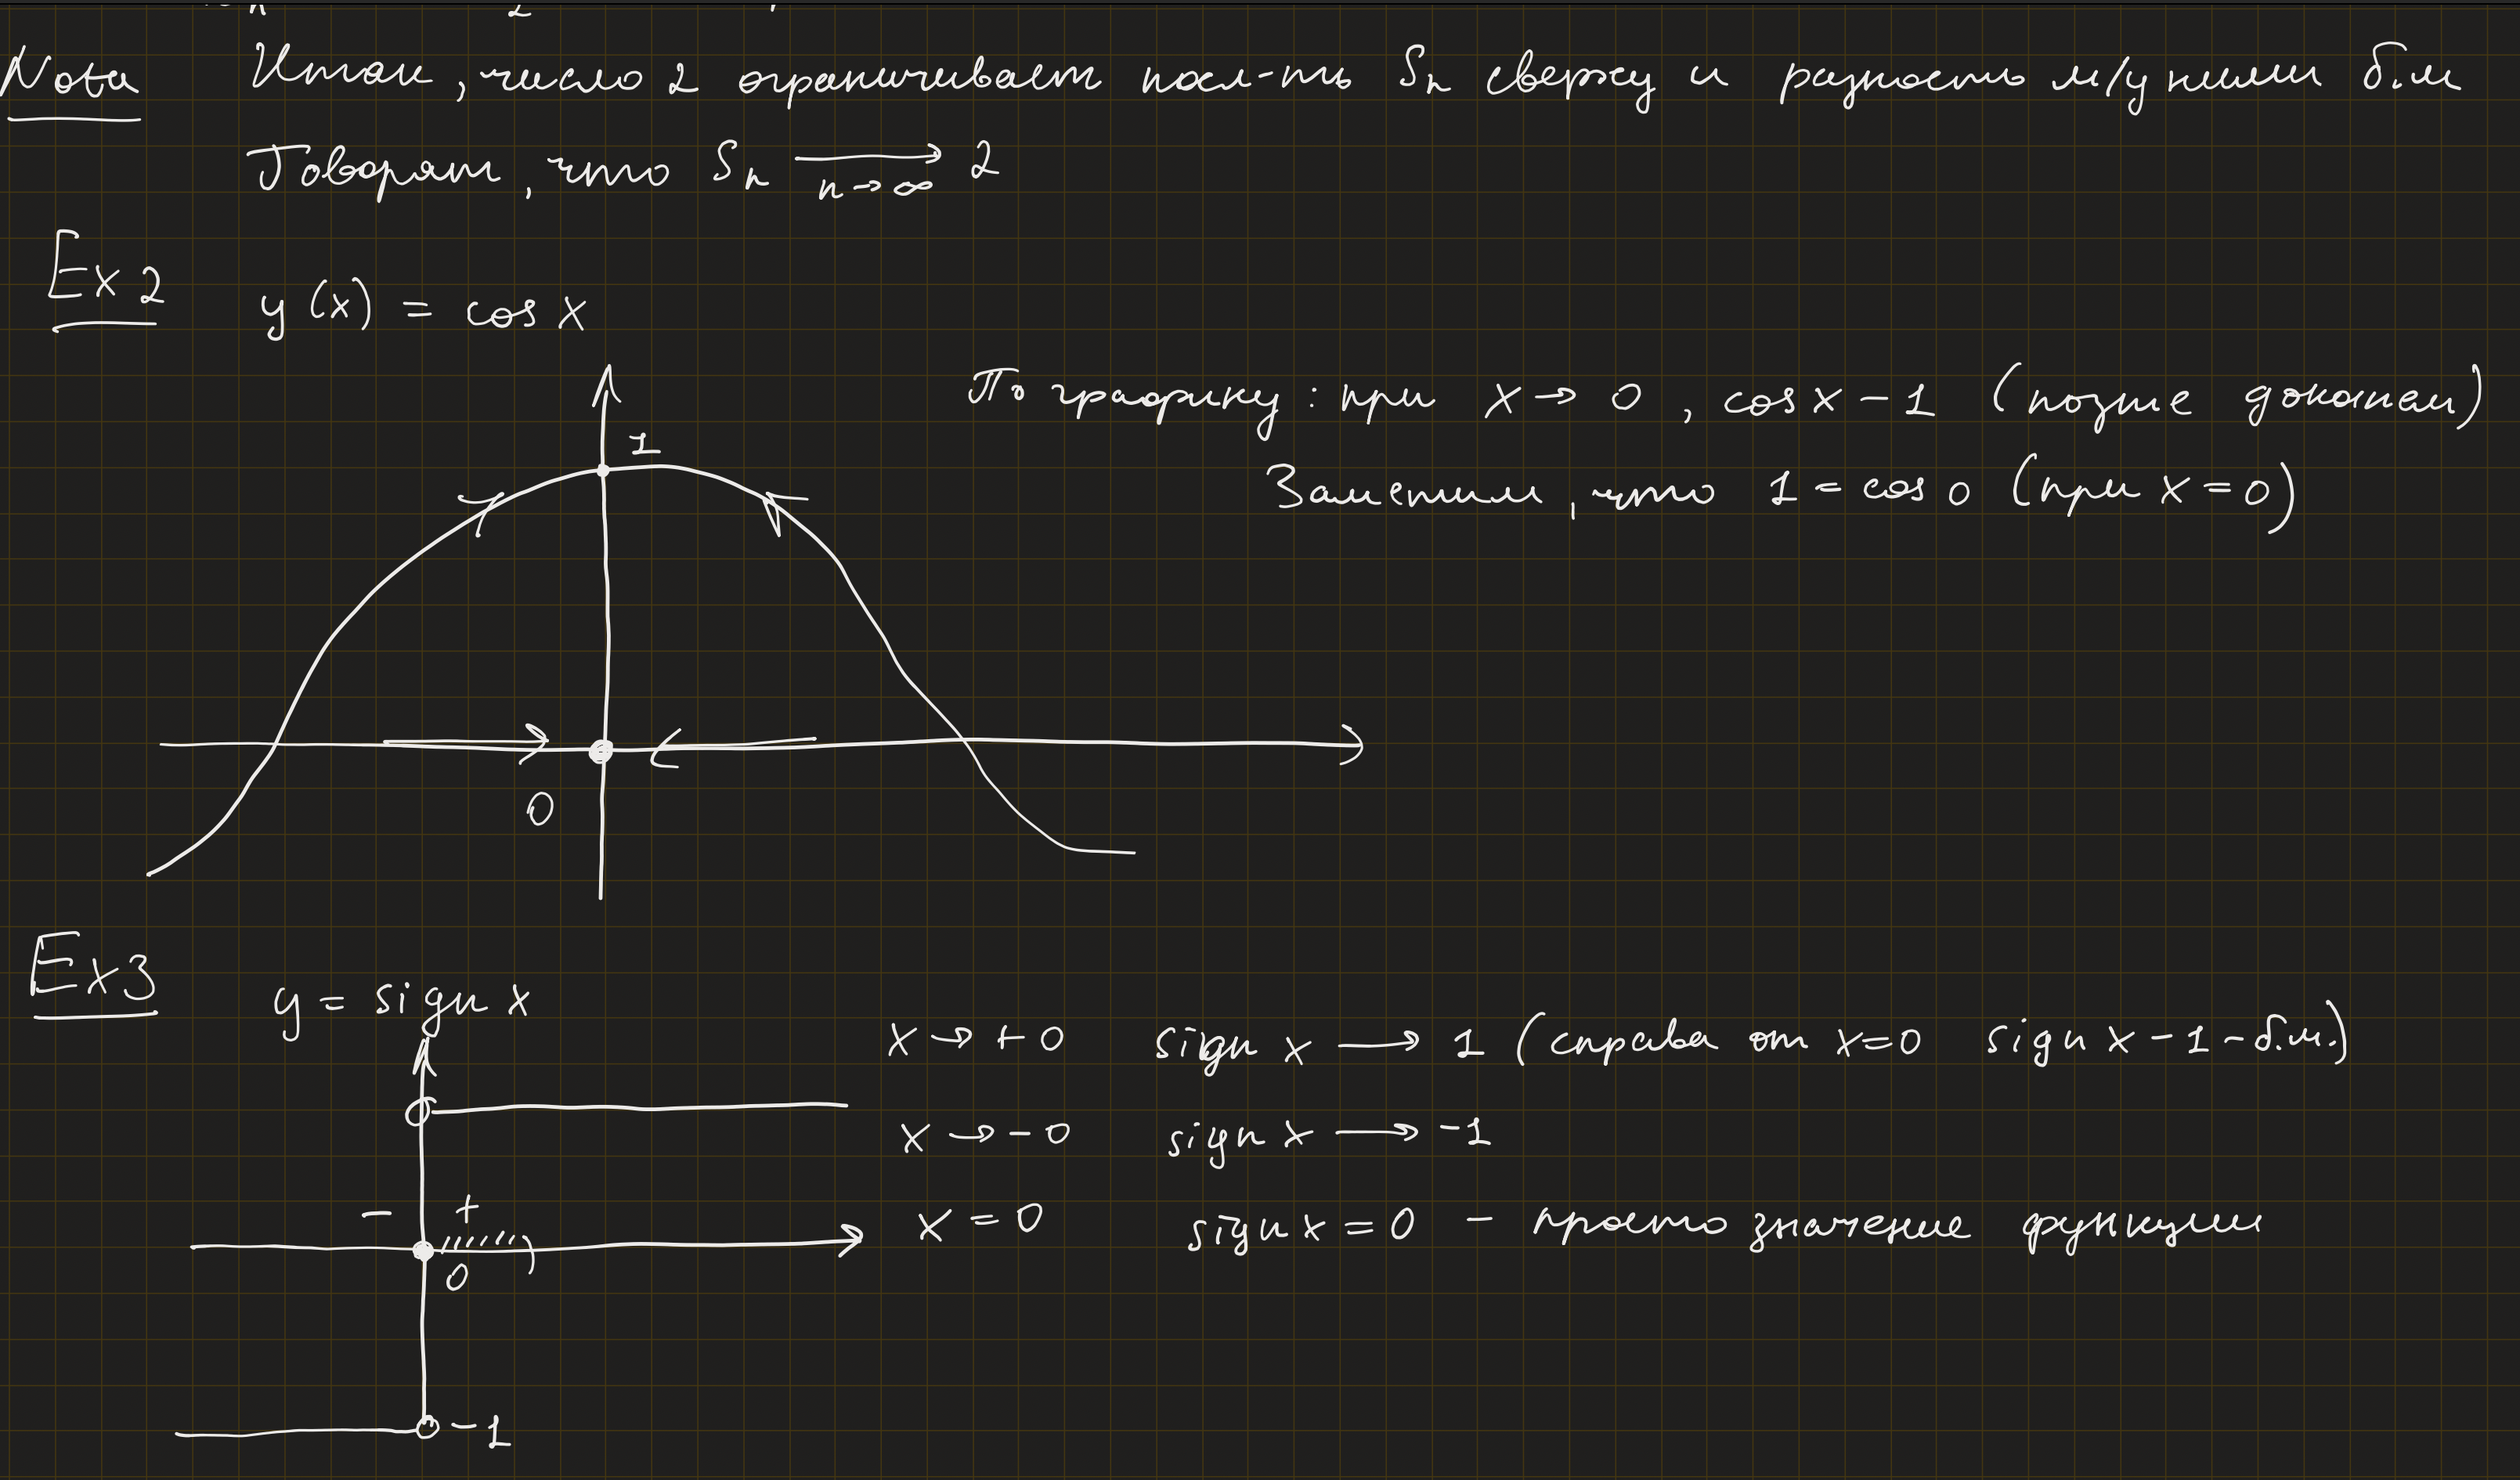 Nota Итак, число 2 ограничивает посл-ть Sₙ сверху и разность м/у ними б.м
Говорят, что Sₙ ⟶ 2
n→∞
Ex 2 y(x) = cos x
По графику: при x → 0, cos x − 1 (позже докажем)
1
Заметим, что 1 = cos 0 (при x = 0)
0
Ex3 y = sign x
x → +0 sign x ⟶ 1 (справа от x=0 sign x − 1 − б.м.)
x → −0 sign x ⟶ −1
− +
x = 0 sign x = 0 − просто значение функции
0
−1